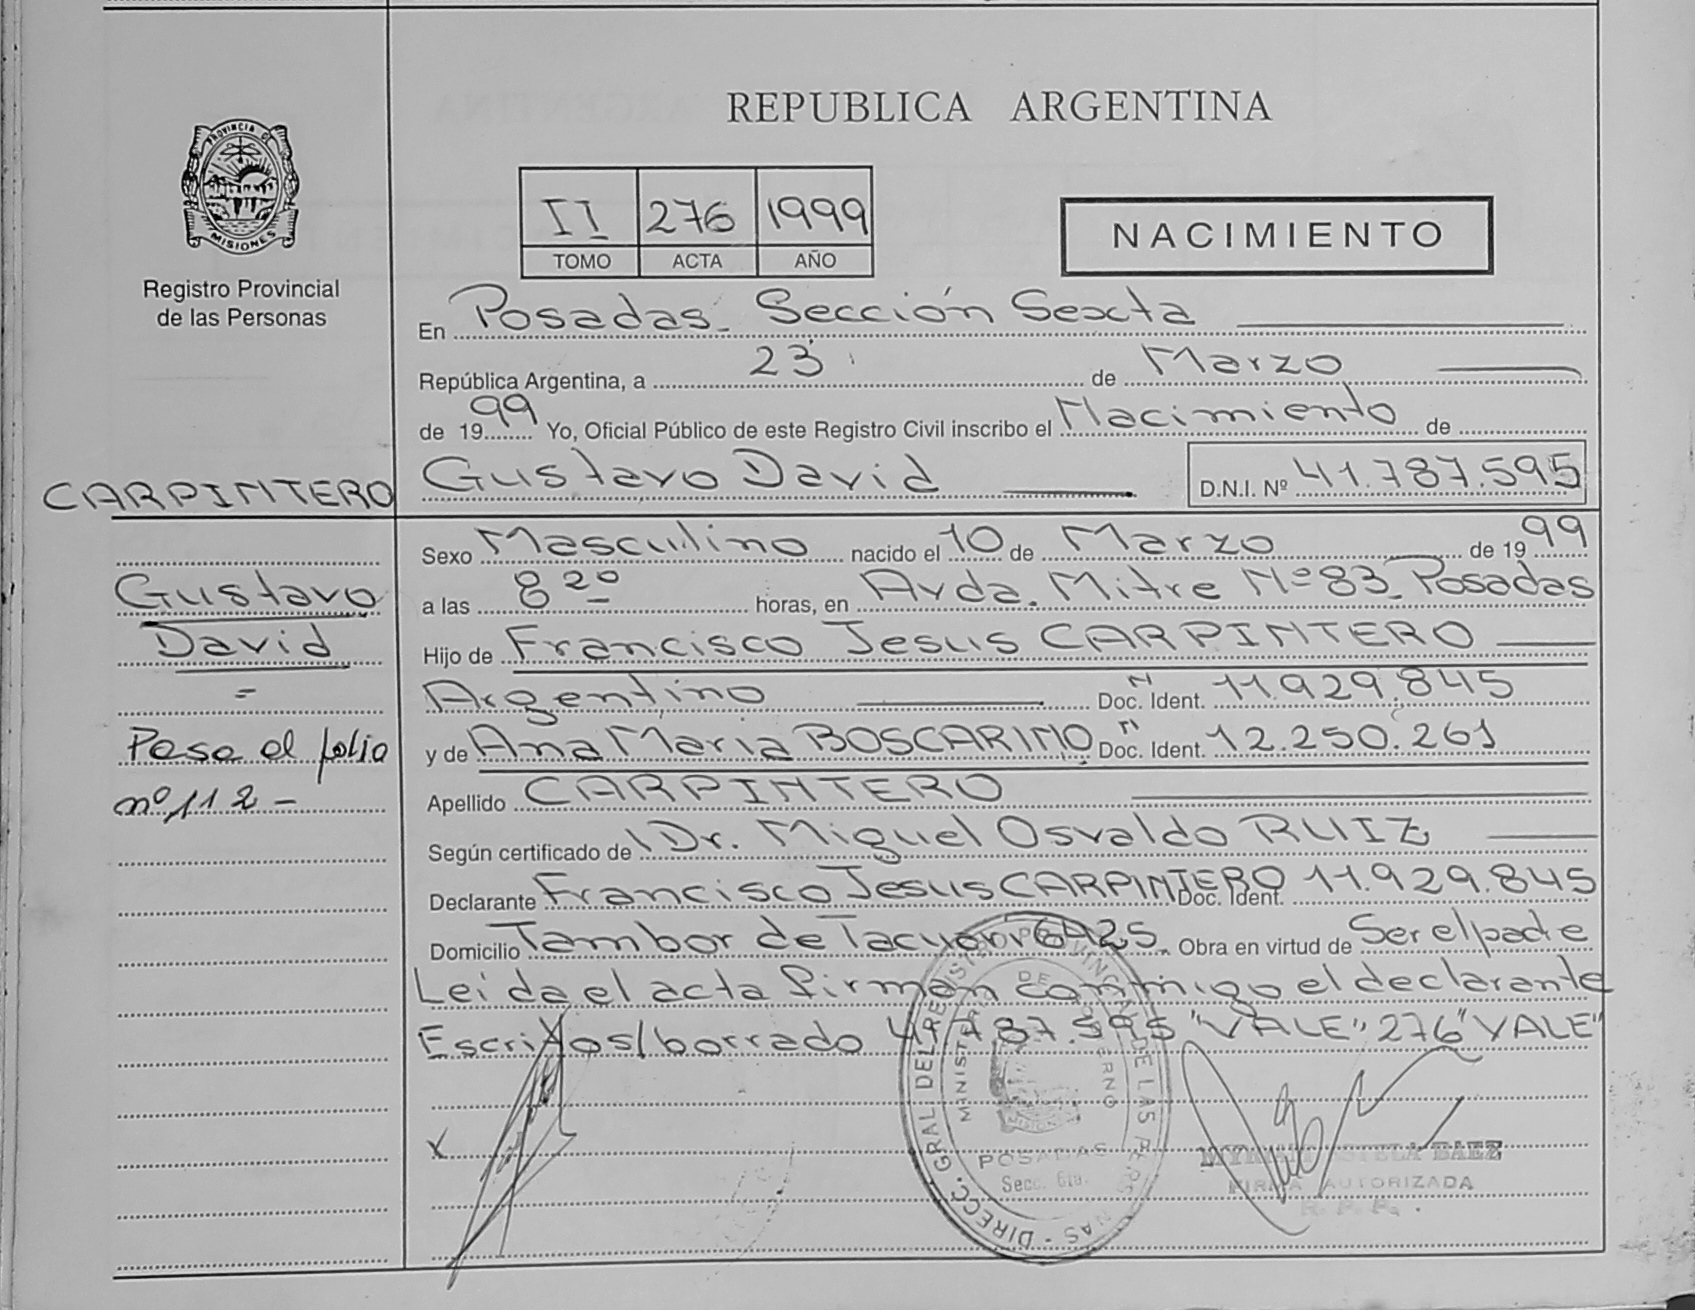 REPUBLICA ARGENTINA
PROVINCIA DE
MISIONES
Registro Provincial
de las Personas
II 276 1999
TOMO ACTA AÑO
NACIMIENTO
En Posadas. Sección Sexta
República Argentina, a 23 de Marzo
de 1999 Yo, Oficial Público de este Registro Civil inscribo el Nacimiento de
CARPINTERO
Gustavo David D.N.I. Nº 41.787.595
Sexo Masculino nacido el 10 de Marzo de 1999
Gustavo
a las 8 20 horas, en Avda. Mitre Nº 83. Posadas
David
Hijo de Francisco Jesus CARPINTERO
=
Argentino Doc. Ident. N 11.929.845
Pase al folio
y de Ana Maria BOSCARINO Doc. Ident. N 12.250.261
nº 112 -
Apellido CARPINTERO
Según certificado de Dr. Miguel Osvaldo RUIZ
Declarante Francisco Jesus CARPINTERO Doc. Ident. 11.929.845
Domicilio Tambor de Tacuari 6425 Obra en virtud de Ser el padre
Leida el acta firman conmigo el declarante
Escritos/borrado 41.787.595 "VALE" 276 "VALE"
X
DIRECC. GRAL. DEL REGISTRO PROVINCIAL DE LAS PERSONAS
MINISTERIO DE GOBIERNO
MISIONES
POSADAS
Secc. 6ta.
ESTELA BAEZ
FIRMA AUTORIZADA
R. P. P.